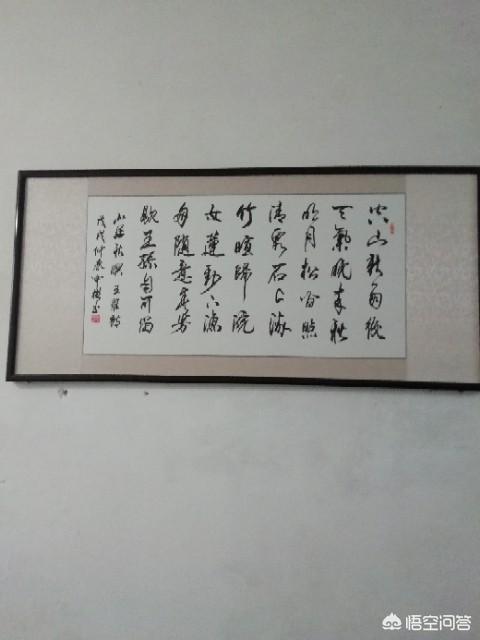 空山新雨後
天氣晚来秋
明月松间照
清泉石上流
竹喧歸浣
女蓮動下漁
舟隨意春芳
歇王孫自可留
山居秋暝 王維詩
戊戌仲春
悟空问答